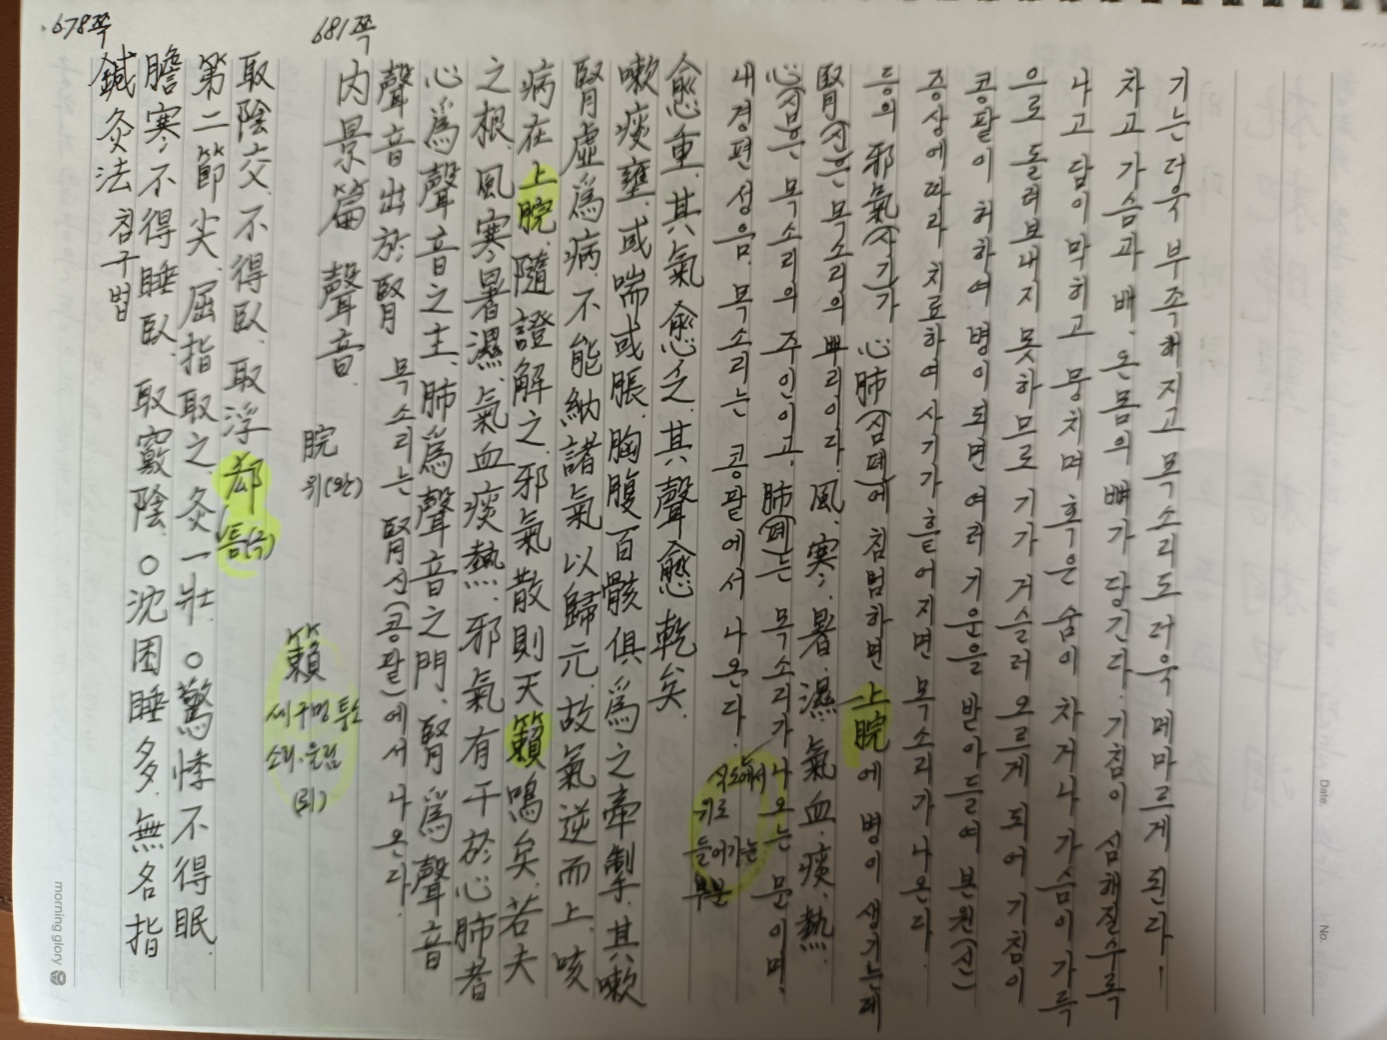 678쪽
鍼灸法 침구법
膽寒不得睡臥. 取竅陰. ○沈困睡多. 無名指
第二節尖. 屈指取之. 灸一壯. ○驚悸不得眠.
取陰交. 不得臥. 取浮郄
틈(극)
681쪽
內景篇 聲音.
脘
위(완)
籟
세구멍 퉁소
소리. 울림
(뢰)
聲音出於腎 목소리는 腎신(콩팥)에서 나온다.
心爲聲音之主. 肺爲聲音之門. 腎爲聲音
之根. 風寒暑濕. 氣血痰熱. 邪氣有干於心肺者
病在上脘. 隨證解之. 邪氣散則天籟鳴矣. 若夫
腎虛爲病. 不能納諸氣以歸元. 故氣逆而上. 咳
嗽痰壅. 或喘或脹. 胸腹百骸俱爲之牽掣. 其嗽
愈重. 其氣愈乏. 其聲愈乾矣.
내경편 성음. 목소리는 콩팥에서 나온다.
식도에서
위로
들어가는
부분
心심은 목소리의 주인이고. 肺(폐)는 목소리가 나오는 문이며.
腎(신)은 목소리의 뿌리이다. 風. 寒. 暑. 濕. 氣血. 痰. 熱.
등의 邪氣(사기)가 心肺(심폐)에 침범하면 上脘에 병이 생기는데
증상에 따라 치료하여 사기가 흩어지면 목소리가 나온다.
콩팥이 허하여 병이 되면 여러 기운을 받아들여 본원(신)
으로 돌려보내지 못하므로 기가 거슬러 오르게 되어 기침이
나고 담이 막히고 뭉치며 혹은 숨이 차거나 가슴이 가득
차고 가슴과 배. 온몸의 뼈가 당긴다. 기침이 심해질수록
기는 더욱 부족해지고 목소리도 더욱 메마르게 된다.
Date.
No.
morning glory